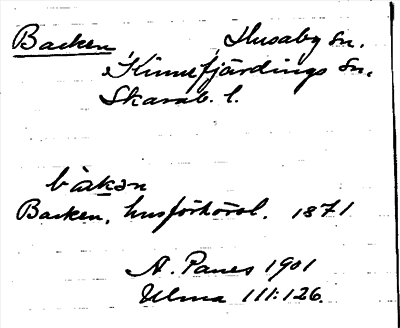 Backen Husaby sn.
Kinnefjärdings sn.
Skarab. l.
backən
Backen, husförhörsl. 1871
A. Panes 1901
Ulma 111:126.